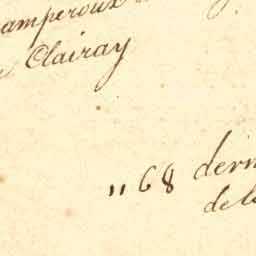 amperoux
Clairay
"68 dern
de la